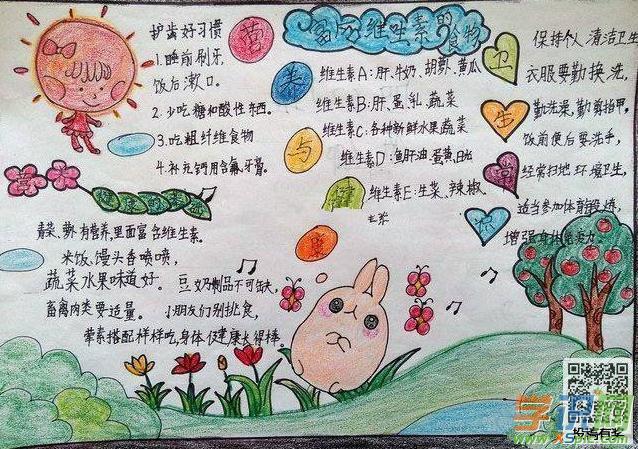 护齿好习惯
1.睡前刷牙
饭后漱口。
2.少吃糖和酸性东西。
3.吃粗纤维食物
4.补充钙用含氟牙膏。
营
养
与
健
康
富含维生素的食物
维生素A:肝、牛奶、胡萝、黄瓜
维生素B:肝、蛋、乳、蔬菜
维生素C:各种新鲜水果、蔬菜
维生素D:鱼肝油、蛋黄、日光
维生素E:生菜、辣椒、
玉米
卫
生
常
识
保持个人清洁卫生
衣服要勤换洗,
勤洗澡,勤剪指甲,
饭前便后要洗手,
经常扫地 环境卫生,
适当参加体育锻炼,
增强身体免疫力
青菜、萝 有营养,里面富含维生素。
米饭、馒头香喷喷,
蔬菜水果味道好。豆奶制品不可缺,
畜禽肉类要适量。小朋友们别挑食,
荤素搭配样样吃,身体健康长得棒。
投稿有奖